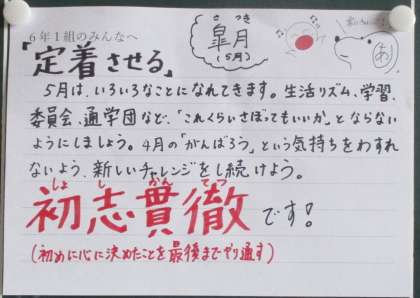 6年1組のみんなへ
さつき
皐月
(5月)
あ
「定着させる」
5月は、いろいろなことになれてきます。生活リズム、学習、
委員会、通学団などで、「これくらいさぼってもいいか」とならない
ようにしましょう。4月の「がんばろう」という気持ちをわすれ
ないよう、新しいチャレンジをし続けよう。
しょ し かん てつ
初志貫徹です!
(初めに心に決めたことを最後までやり通す)